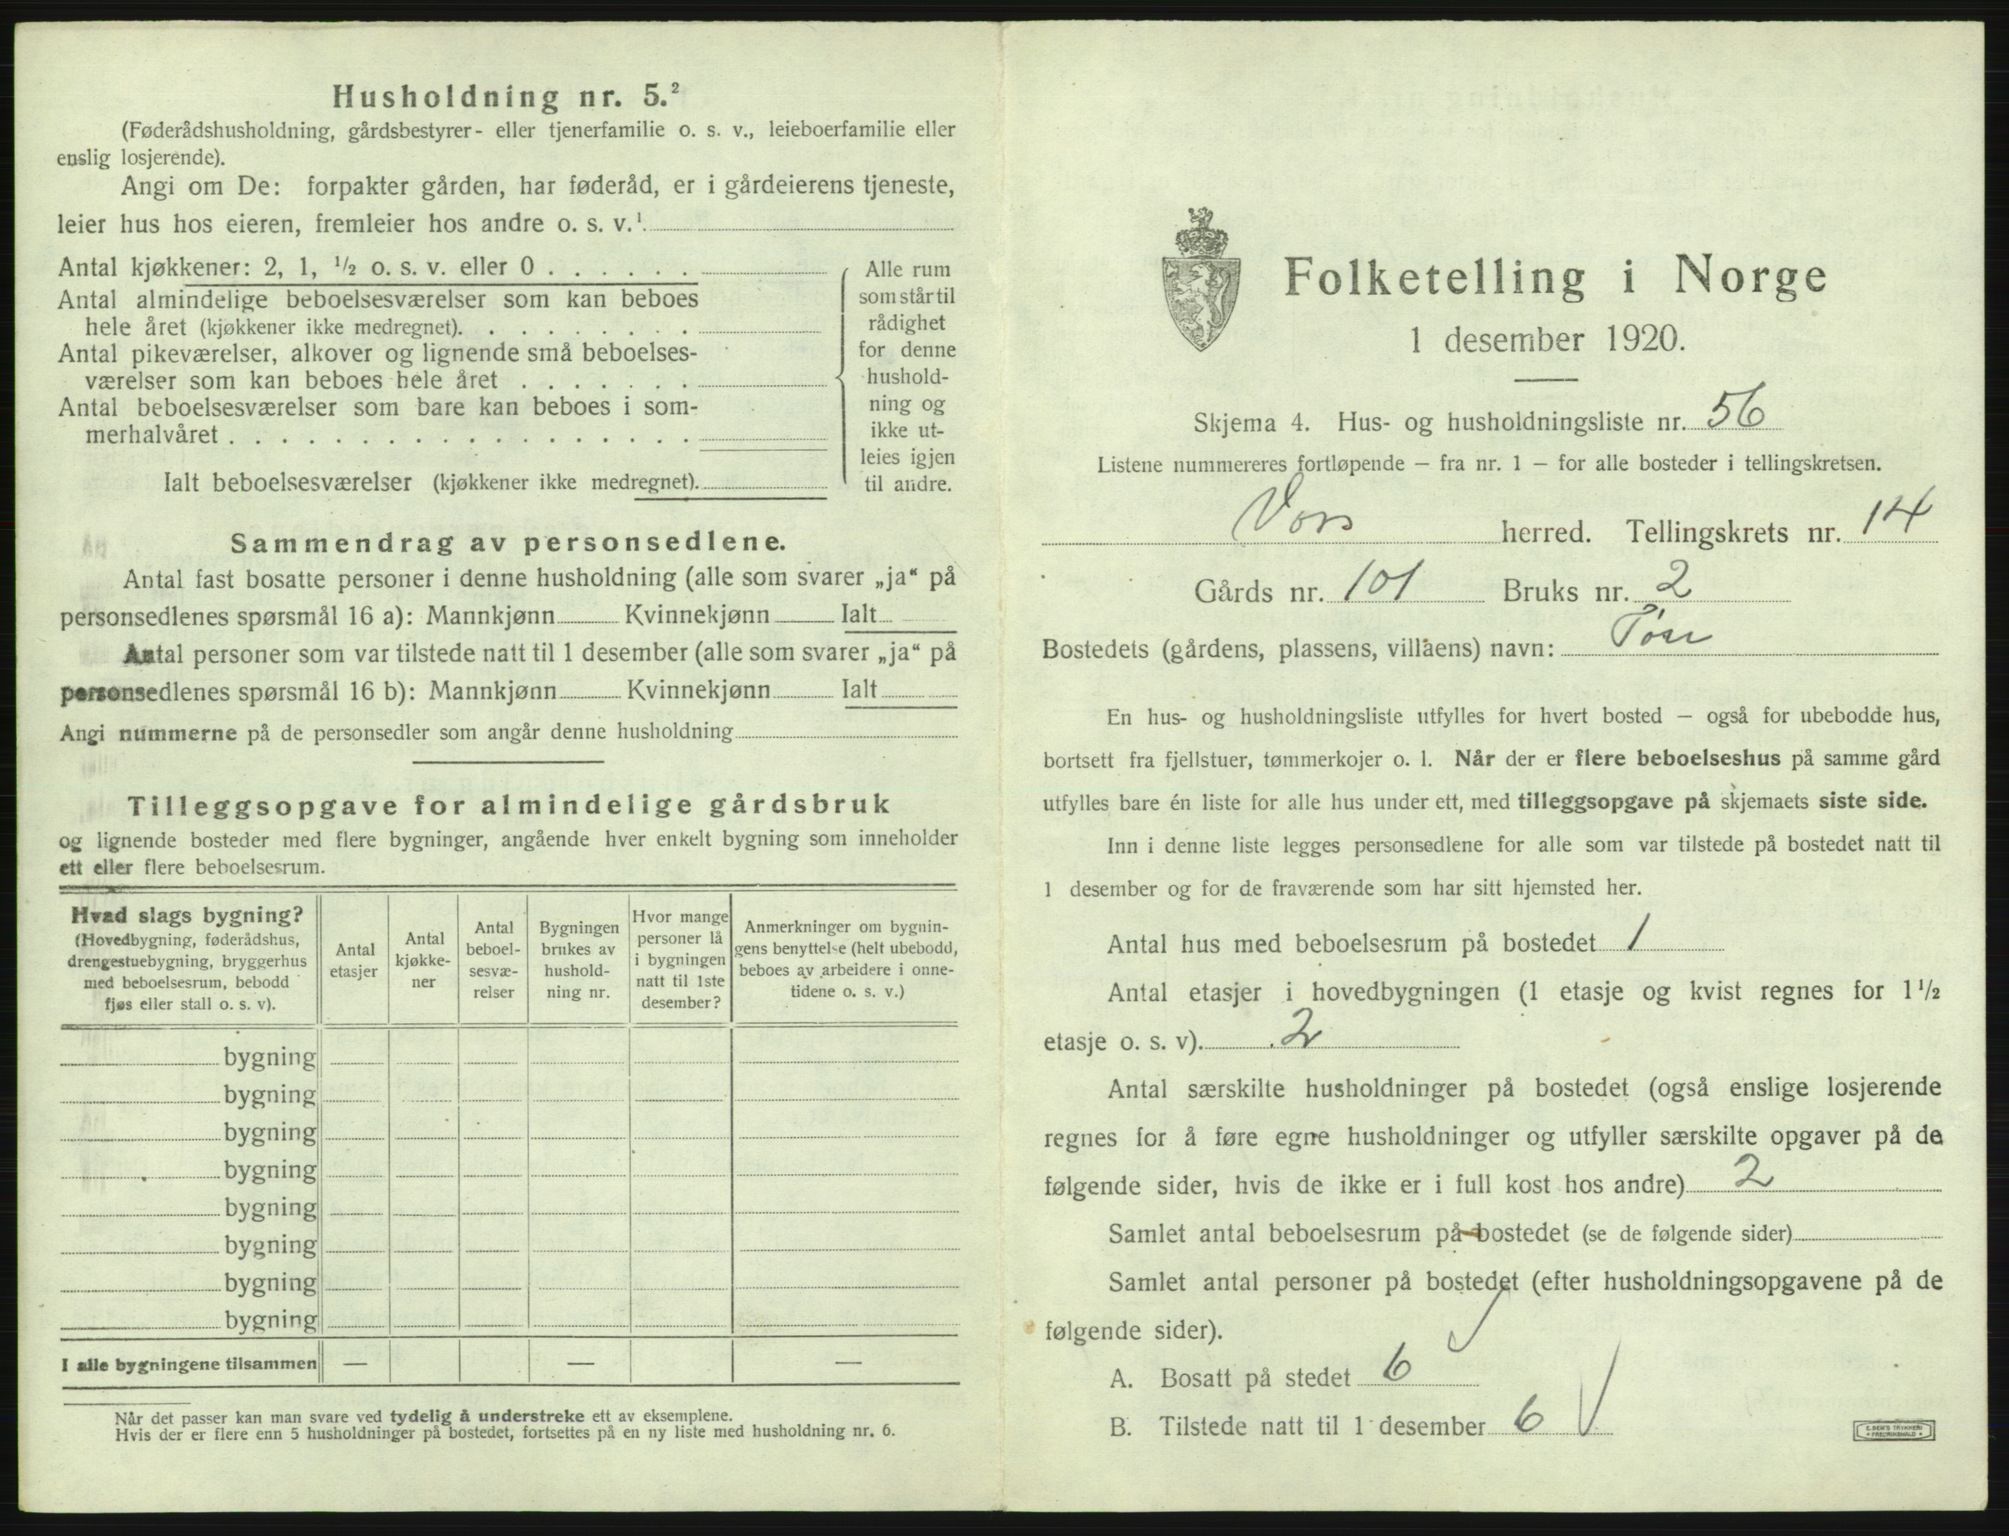 Husholdning nr. 5.²
(Føderådshusholdning, gårdsbestyrer- eller tjenerfamilie o. s. v., leieboerfamilie eller
enslig losjerende).
Angi om De: forpakter gården, har føderåd, er i gårdeierens tjeneste,
leier hus hos eieren, fremleier hos andre o. s. v.¹
Antal kjøkkener: 2, 1, ½ o. s. v. eller 0 . . . . . .
Antal almindelige beboelsesværelser som kan beboes
hele året (kjøkkener ikke medregnet). . . . . . . . .
Antal pikeværelser, alkover og lignende små beboelses-
værelser som kan beboes hele året . . . . . . .
Antal beboelsesværelser som bare kan beboes i som-
merhalvåret . . . . . . . . . . . . . . . . . .
Ialt beboelsesværelser (kjøkkener ikke medregnet).
Alle rum
som står til
rådighet
for denne
hushold-
ning og
ikke ut-
leies igjen
til andre.
Sammendrag av personsedlene.
Antal fast bosatte personer i denne husholdning (alle som svarer „ja“ på
personsedlenes spørsmål 16 a): Mannkjønn Kvinnekjønn Ialt
Antal personer som var tilstede natt til 1 desember (alle som svarer „ja“ på
personsedlenes spørsmål 16 b): Mannkjønn Kvinnekjønn Ialt
Angi nummerne på de personsedler som angår denne husholdning
Tilleggsopgave for almindelige gårdsbruk
og lignende bosteder med flere bygninger, angående hver enkelt bygning som inneholder
ett eller flere beboelsesrum.
Hvad slags bygning?
(Hovedbygning, føderådshus,
drengestuebygning, bryggerhus
med beboelsesrum, bebodd
fjøs eller stall o. s. v).
Antal
etasjer
Antal
kjøkke-
ner
Antal
beboel-
sesvæ-
relser
Bygningen
brukes av
hushold-
ning nr.
Hvor mange
personer lå
i bygningen
natt til 1ste
desember?
Anmerkninger om bygnin-
gens benyttelse (helt ubebodd,
beboes av arbeidere i onne-
tidene o. s. v.)
bygning
bygning
bygning
bygning
bygning
bygning
bygning
bygning
I alle bygningene tilsammen — — —
Når det passer kan man svare ved tydelig å understreke ett av eksemplene.
Hvis der er flere enn 5 husholdninger på bostedet, fortsettes på en ny liste med husholdning nr. 6.
Folketelling i Norge
1 desember 1920.
Skjema 4. Hus- og husholdningsliste nr. 56
Listene nummereres fortløpende – fra nr. 1 – for alle bosteder i tellingskretsen.
Vors herred. Tellingskrets nr. 14
Gårds nr. 101 Bruks nr. 2
Bostedets (gårdens, plassens, villaens) navn:
En hus- og husholdningsliste utfylles for hvert bosted – også for ubebodde hus,
bortsett fra fjellstuer, tømmerkojer o. l. Når der er flere beboelseshus på samme gård
utfylles bare én liste for alle hus under ett, med tilleggsopgave på skjemaets siste side.
Inn i denne liste legges personsedlene for alle som var tilstede på bostedet natt til
1 desember og for de fraværende som har sitt hjemsted her.
Antal hus med beboelsesrum på bostedet 1
Antal etasjer i hovedbygningen (1 etasje og kvist regnes for 1 ½
etasje o. s. v). 2
Antal særskilte husholdninger på bostedet (også enslige losjerende
regnes for å føre egne husholdninger og utfyller særskilte opgaver på de
følgende sider, hvis de ikke er i full kost hos andre) 2
Samlet antal beboelsesrum på bostedet (se de følgende sider)
Samlet antal personer på bostedet (efter husholdningsopgavene på de
følgende sider).
A. Bosatt på stedet 6
B. Tilstede natt til 1 desember 6